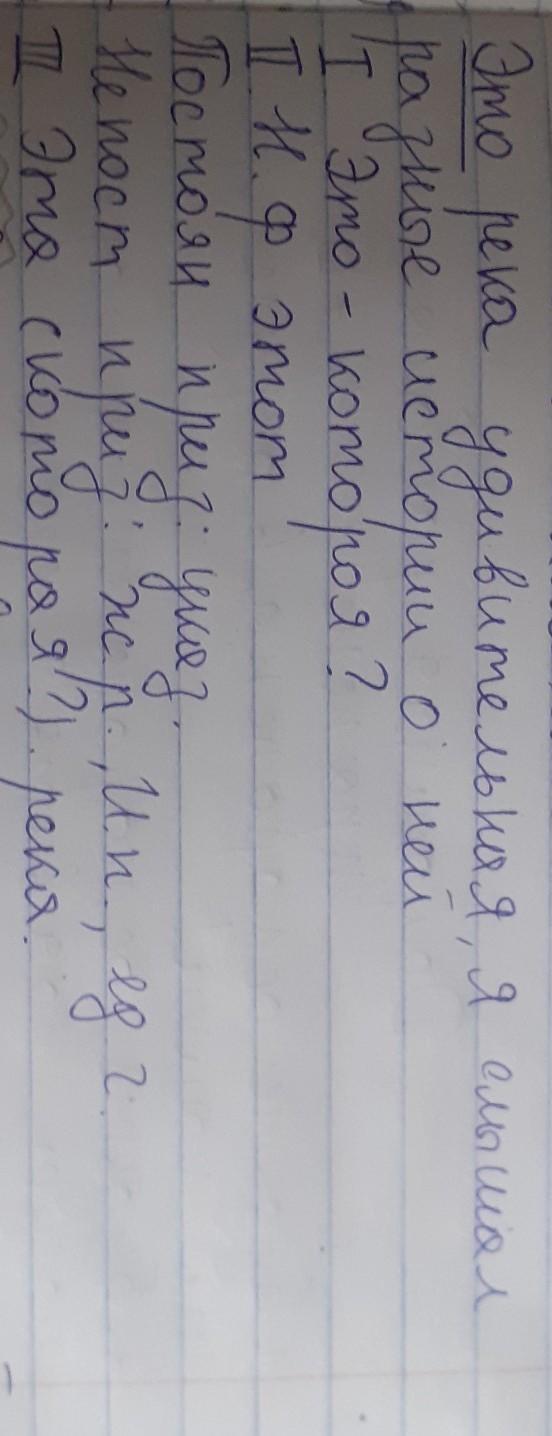 Это река удивительная, я слышал
разные истории о ней
I Это - котороя?
II Н.ф этот
Постоян приз: указ,
Непост приз: ж.р., И.п., ед ч.
III Эта (которая?). река.